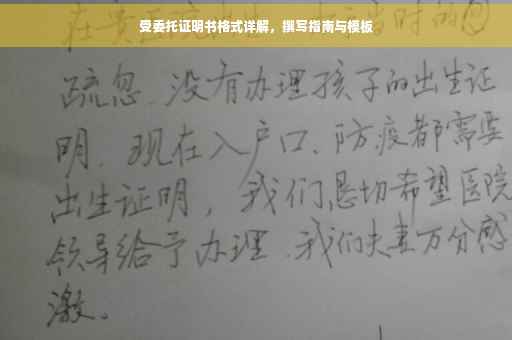 受委托证明书格式详解，撰写指南与模板
疏忽、没有办理孩子的出生证
明、现在入户口、防疫都需要
出生证明，我们恳切希望医院
领导给予办理、我们夫妻万分感
激。